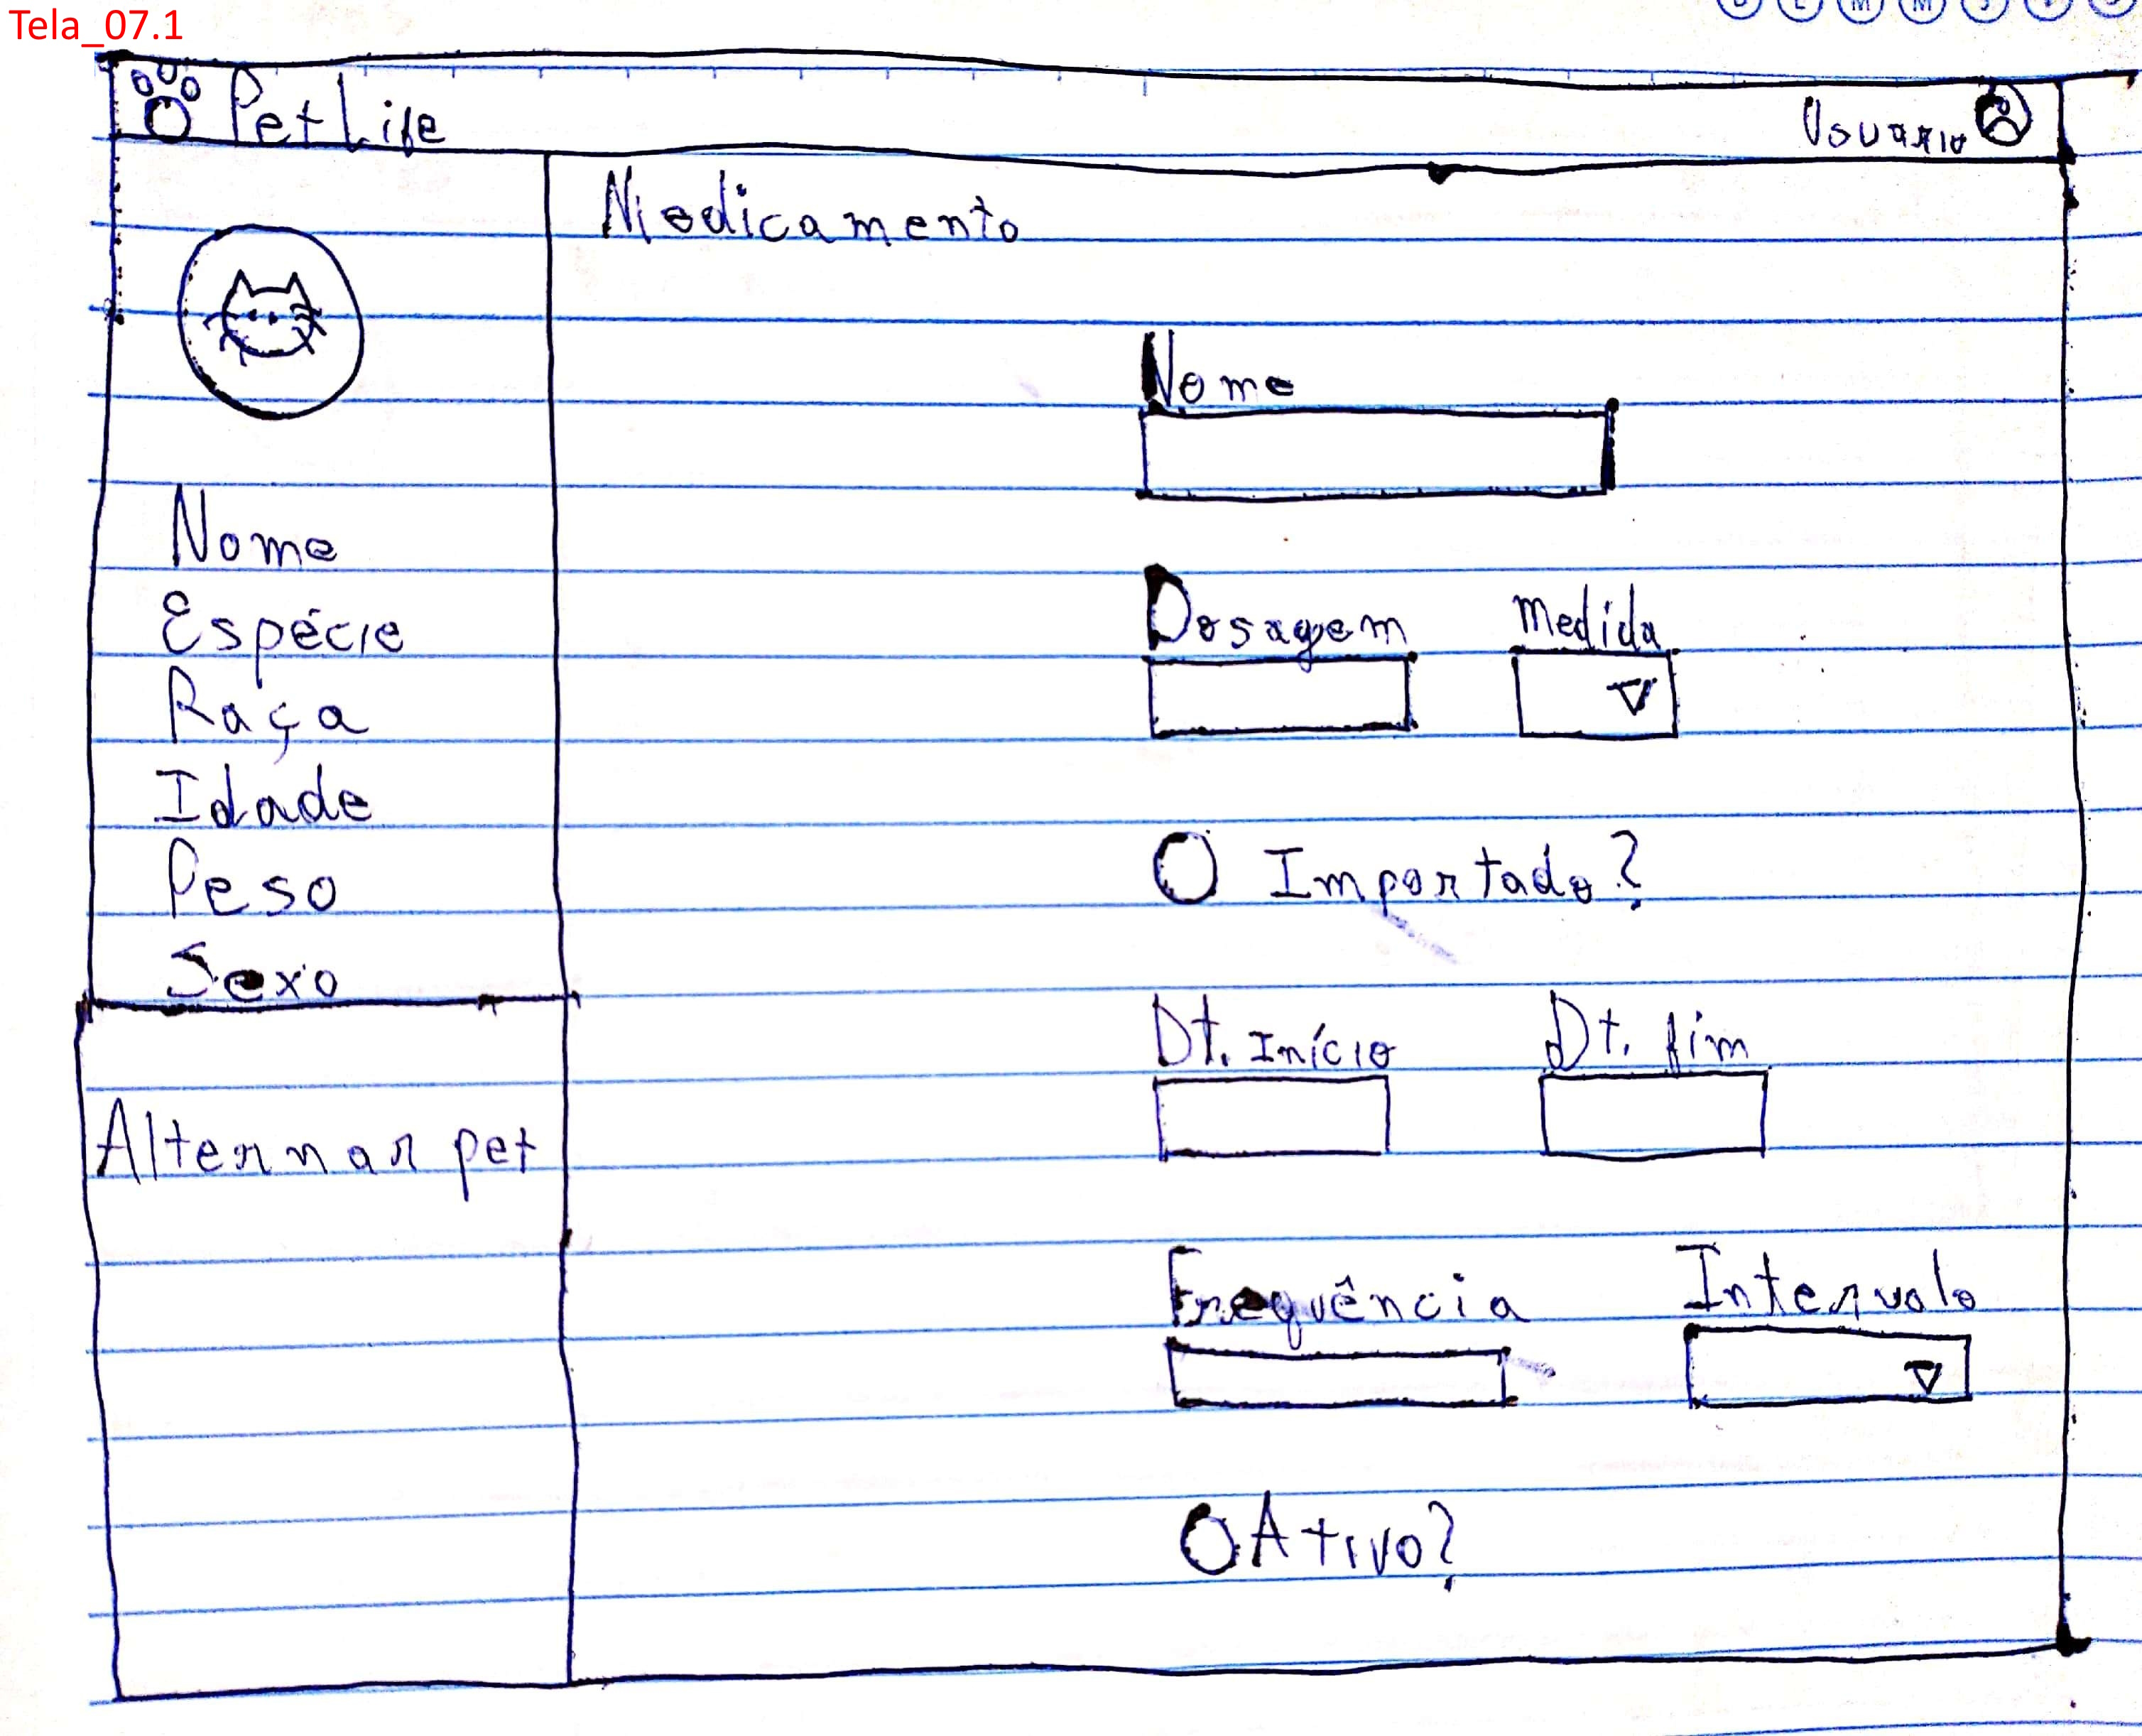 Tela_07.1
PetLife
Usuário
Medicamento
Nome
Espécie
Raça
Idade
Peso
Sexo
Alternar pet
Nome
Dosagem Medida
Importado?
Dt. Início Dt. fim
Frequência Intervalo
Ativo?